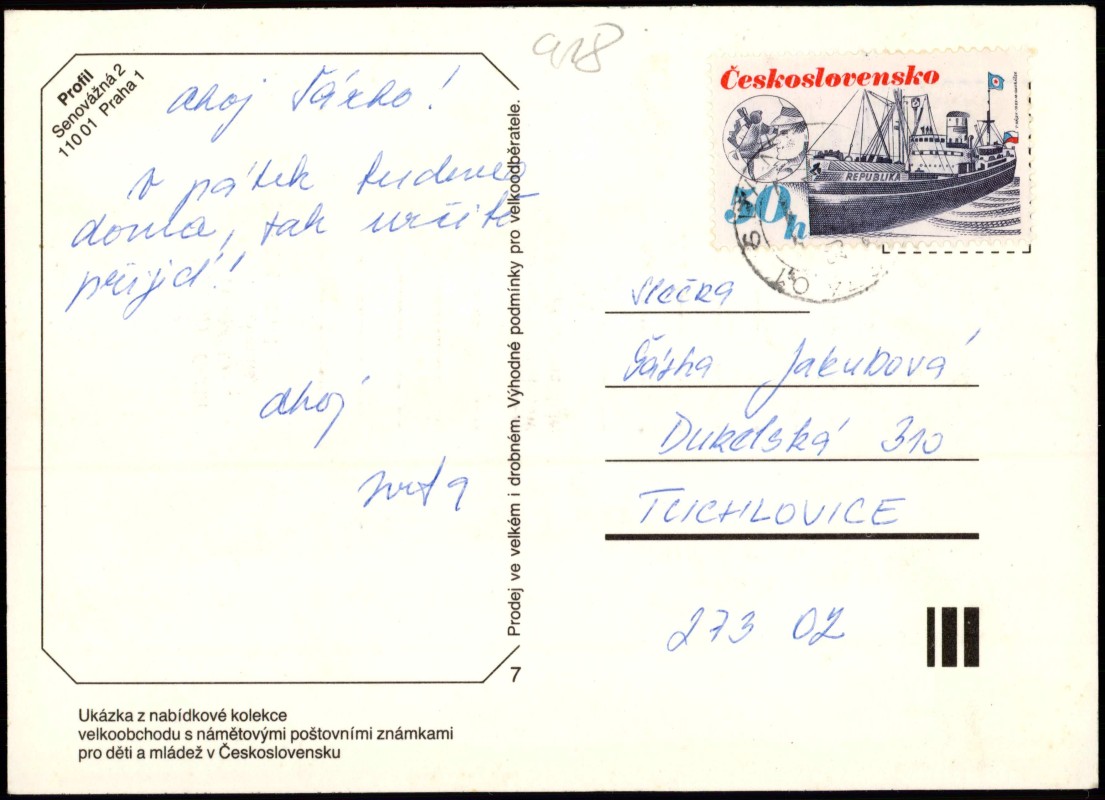 918
Profil
Senovážná 2
110 01 Praha 1
ahoj Šárko!
v pátek budeme
doma, tak určitě
přijď!
ahoj
Prodej ve velkém i drobném. Výhodné podmínky pro velkoodběratele.
7
Ukázka z nabídkové kolekce
velkoobchodu s námětovými poštovními známkami
pro děti a mládež v Československu
Československo
REPUBLIKA
50h
slečna
Šárka Jakubová
Dukelská 310
TUCHLOVICE
273 02